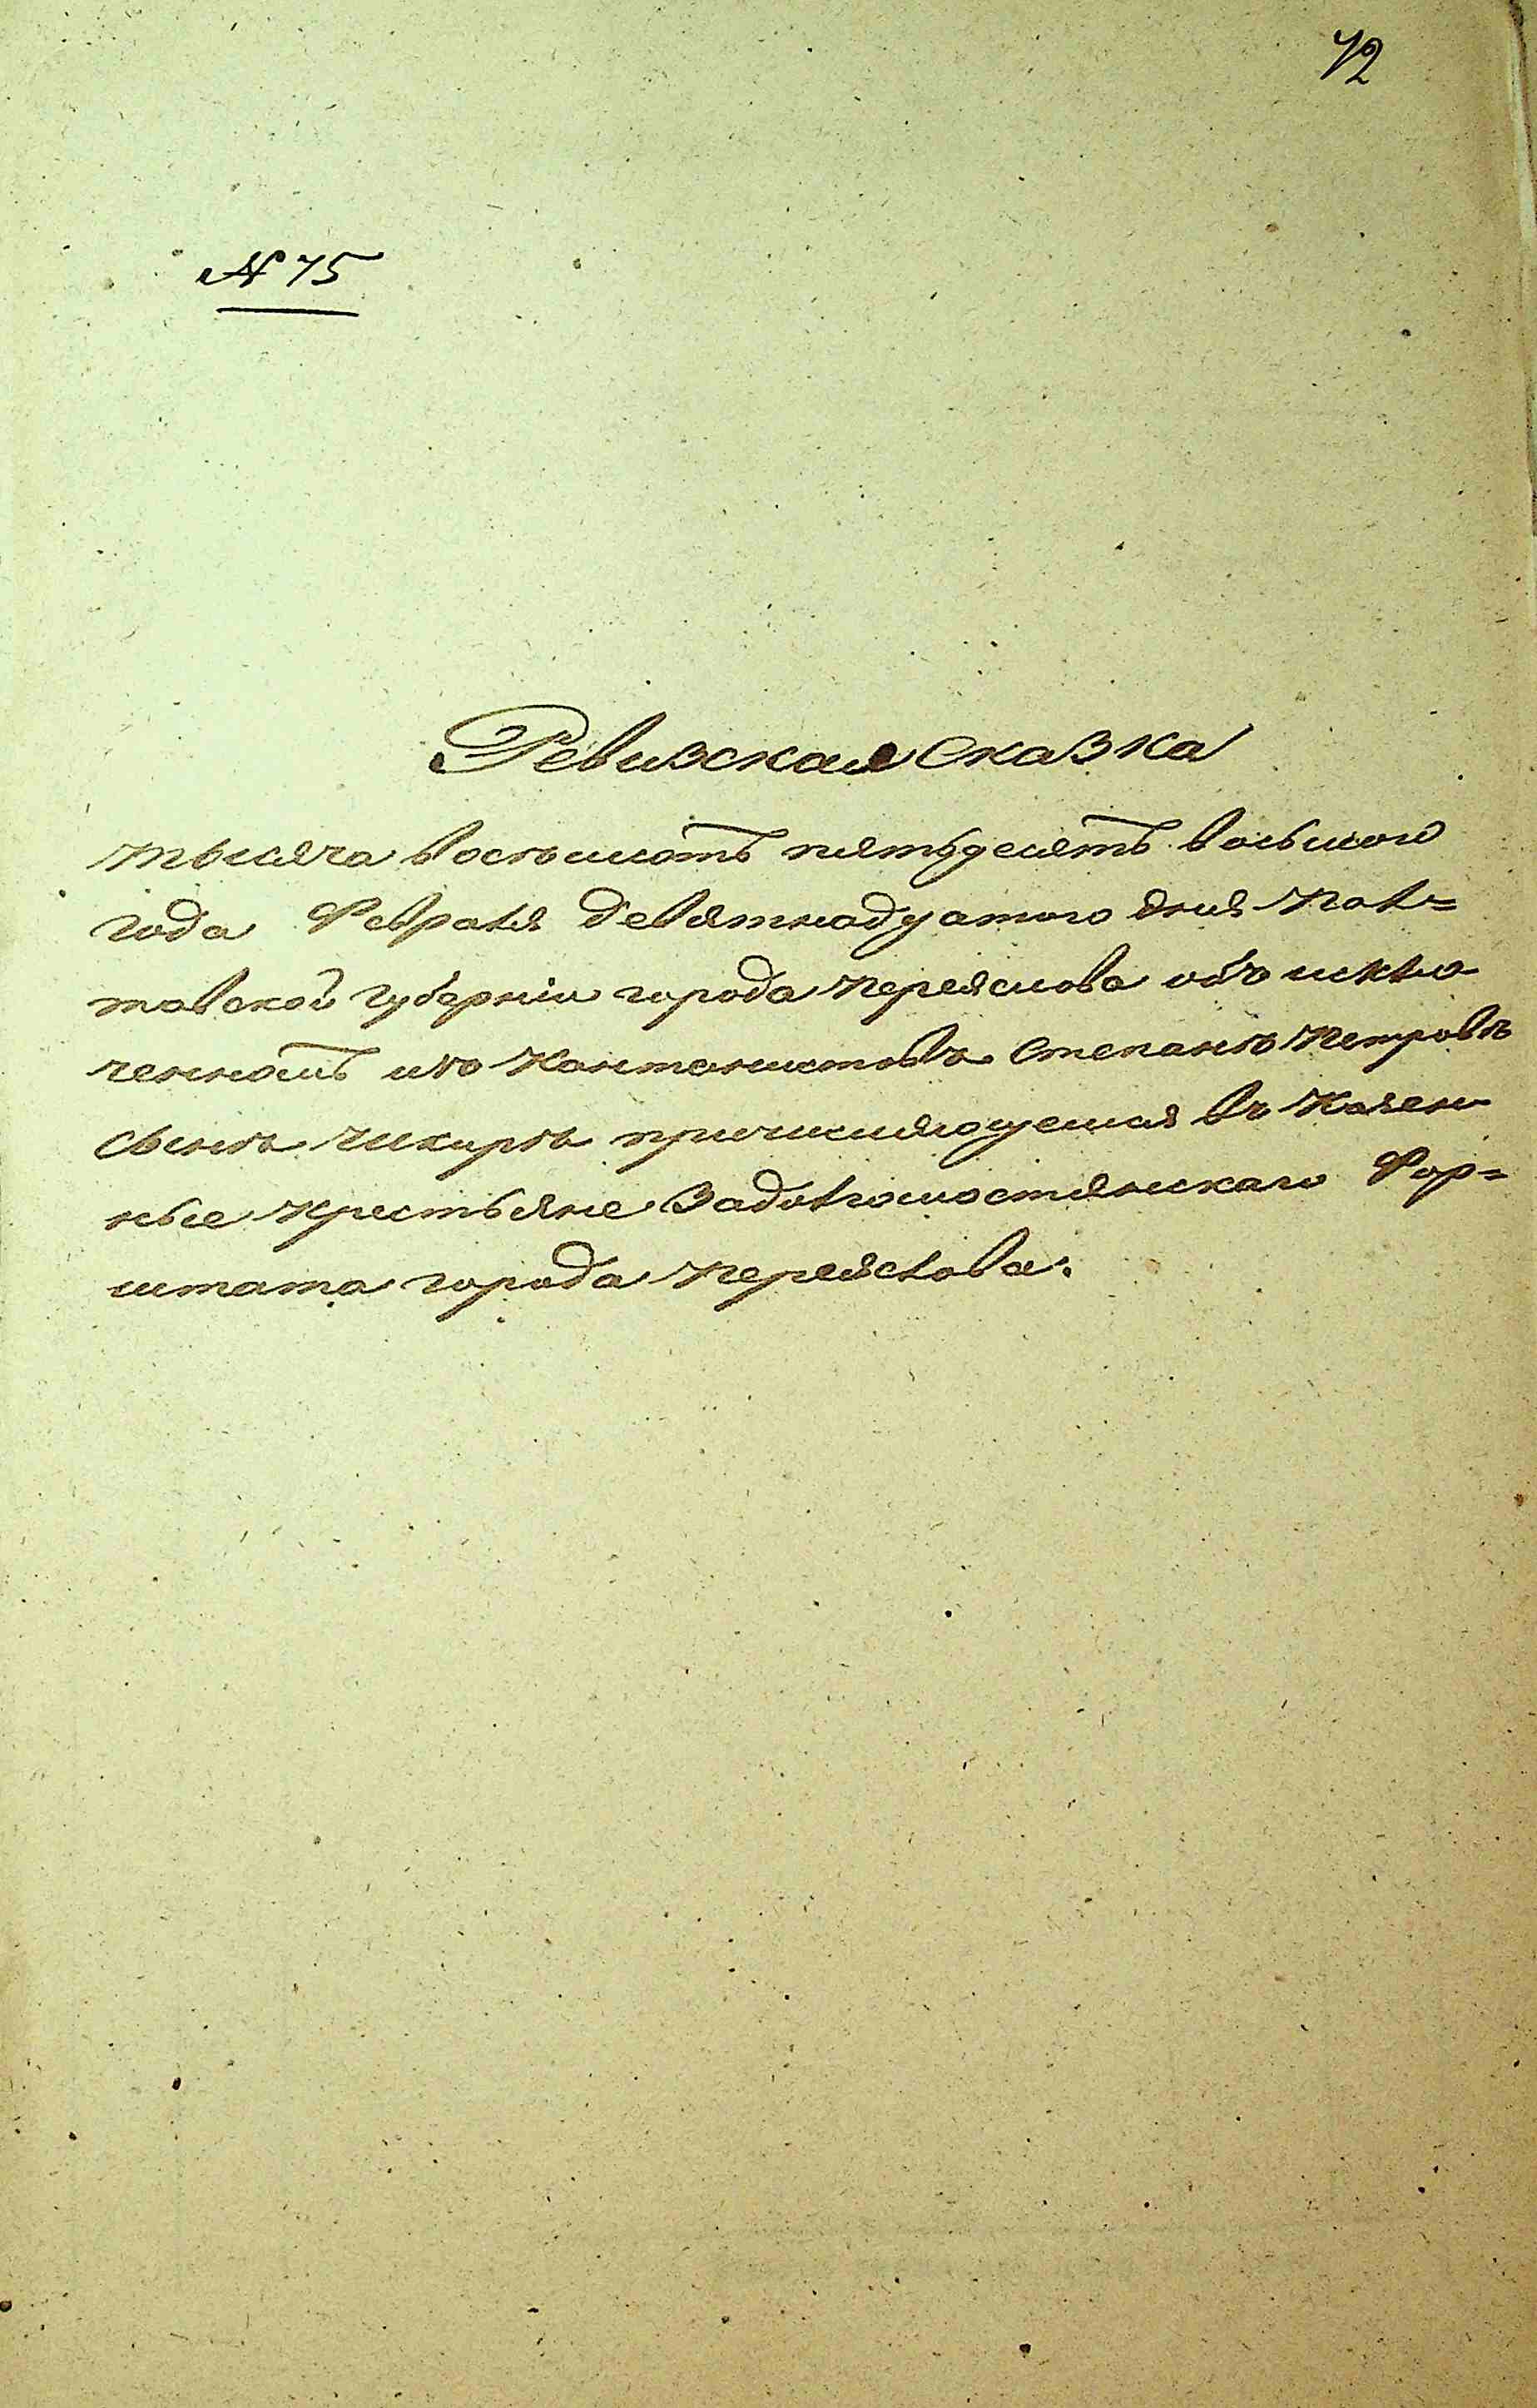 72
№ 75
Ревизская Сказка
тысяча восемьсотъ пятьдесятъ восьмого
года Февраля девятнадцатого дня Пол=
тавской губерніи города Переяслова объ исклю
ченномъ изъ Кантонистовъ Степанѣ Петровѣ
сынѣ причисляющемся въ Казен
ные крестьяне Задолгомостянскаго Фор=
штата города Переяслова.